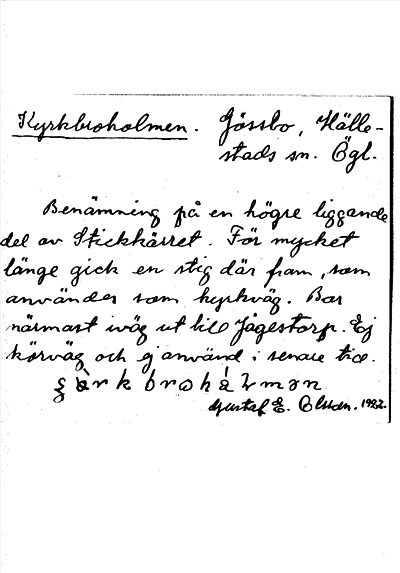 Kyrkbroholmen. Jössbo, Hälle-
stads sn. Ögl.
Benämning på en högre liggande
del av Stickkärret. För mycket
länge gick en stig där fram, som
användes som kyrkväg. Bar
närmast iväg ut till Jägestorp. Ej
körväg och ej använd i senare tid.
Gustaf E. Olsson. 1922.